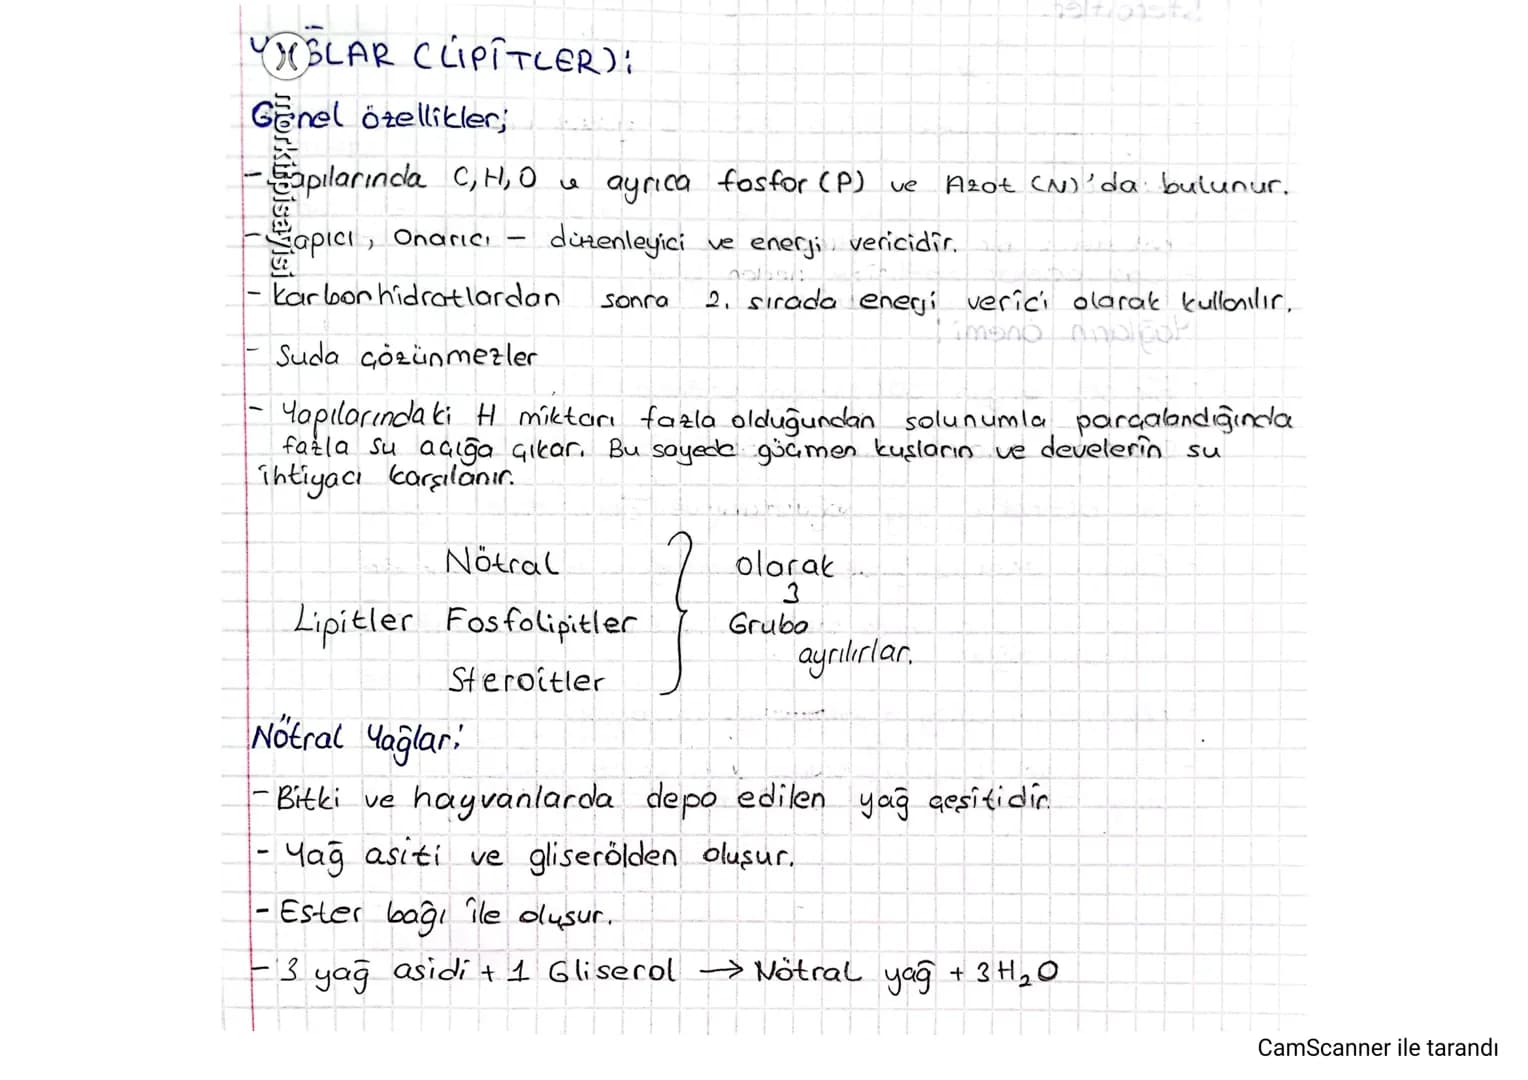 YAĞLAR (LİPİTLER):
Genel özellikler;
- Yapılarında C, H, O ve ayrıca fosfor (P) ve Azot (N)'da bulunur.
- Yapıcı, Onarıcı - düzenleyici ve enerji vericidir.
- Karbonhidratlardan sonra 2. sırada enerji verici olarak kullanılır.
- Suda çözünmezler
- Yapılarındaki H miktarı fazla olduğundan solunumla parçalandığında
fazla su açığa çıkar. Bu sayede göçmen kuşların ve develerin su
ihtiyacı karşılanır.
Nötral olarak
3
Lipitler Fosfolipitler Gruba
ayrılırlar.
Steroitler
Nötral Yağlar:
- Bitki ve hayvanlarda depo edilen yağ çeşitidir.
- Yağ asiti ve gliserölden oluşur.
- Ester bağı ile oluşur.
- 3 yağ asidi + 1 Gliserol → Nötral yağ + 3H₂O
CamScanner ile tarandı